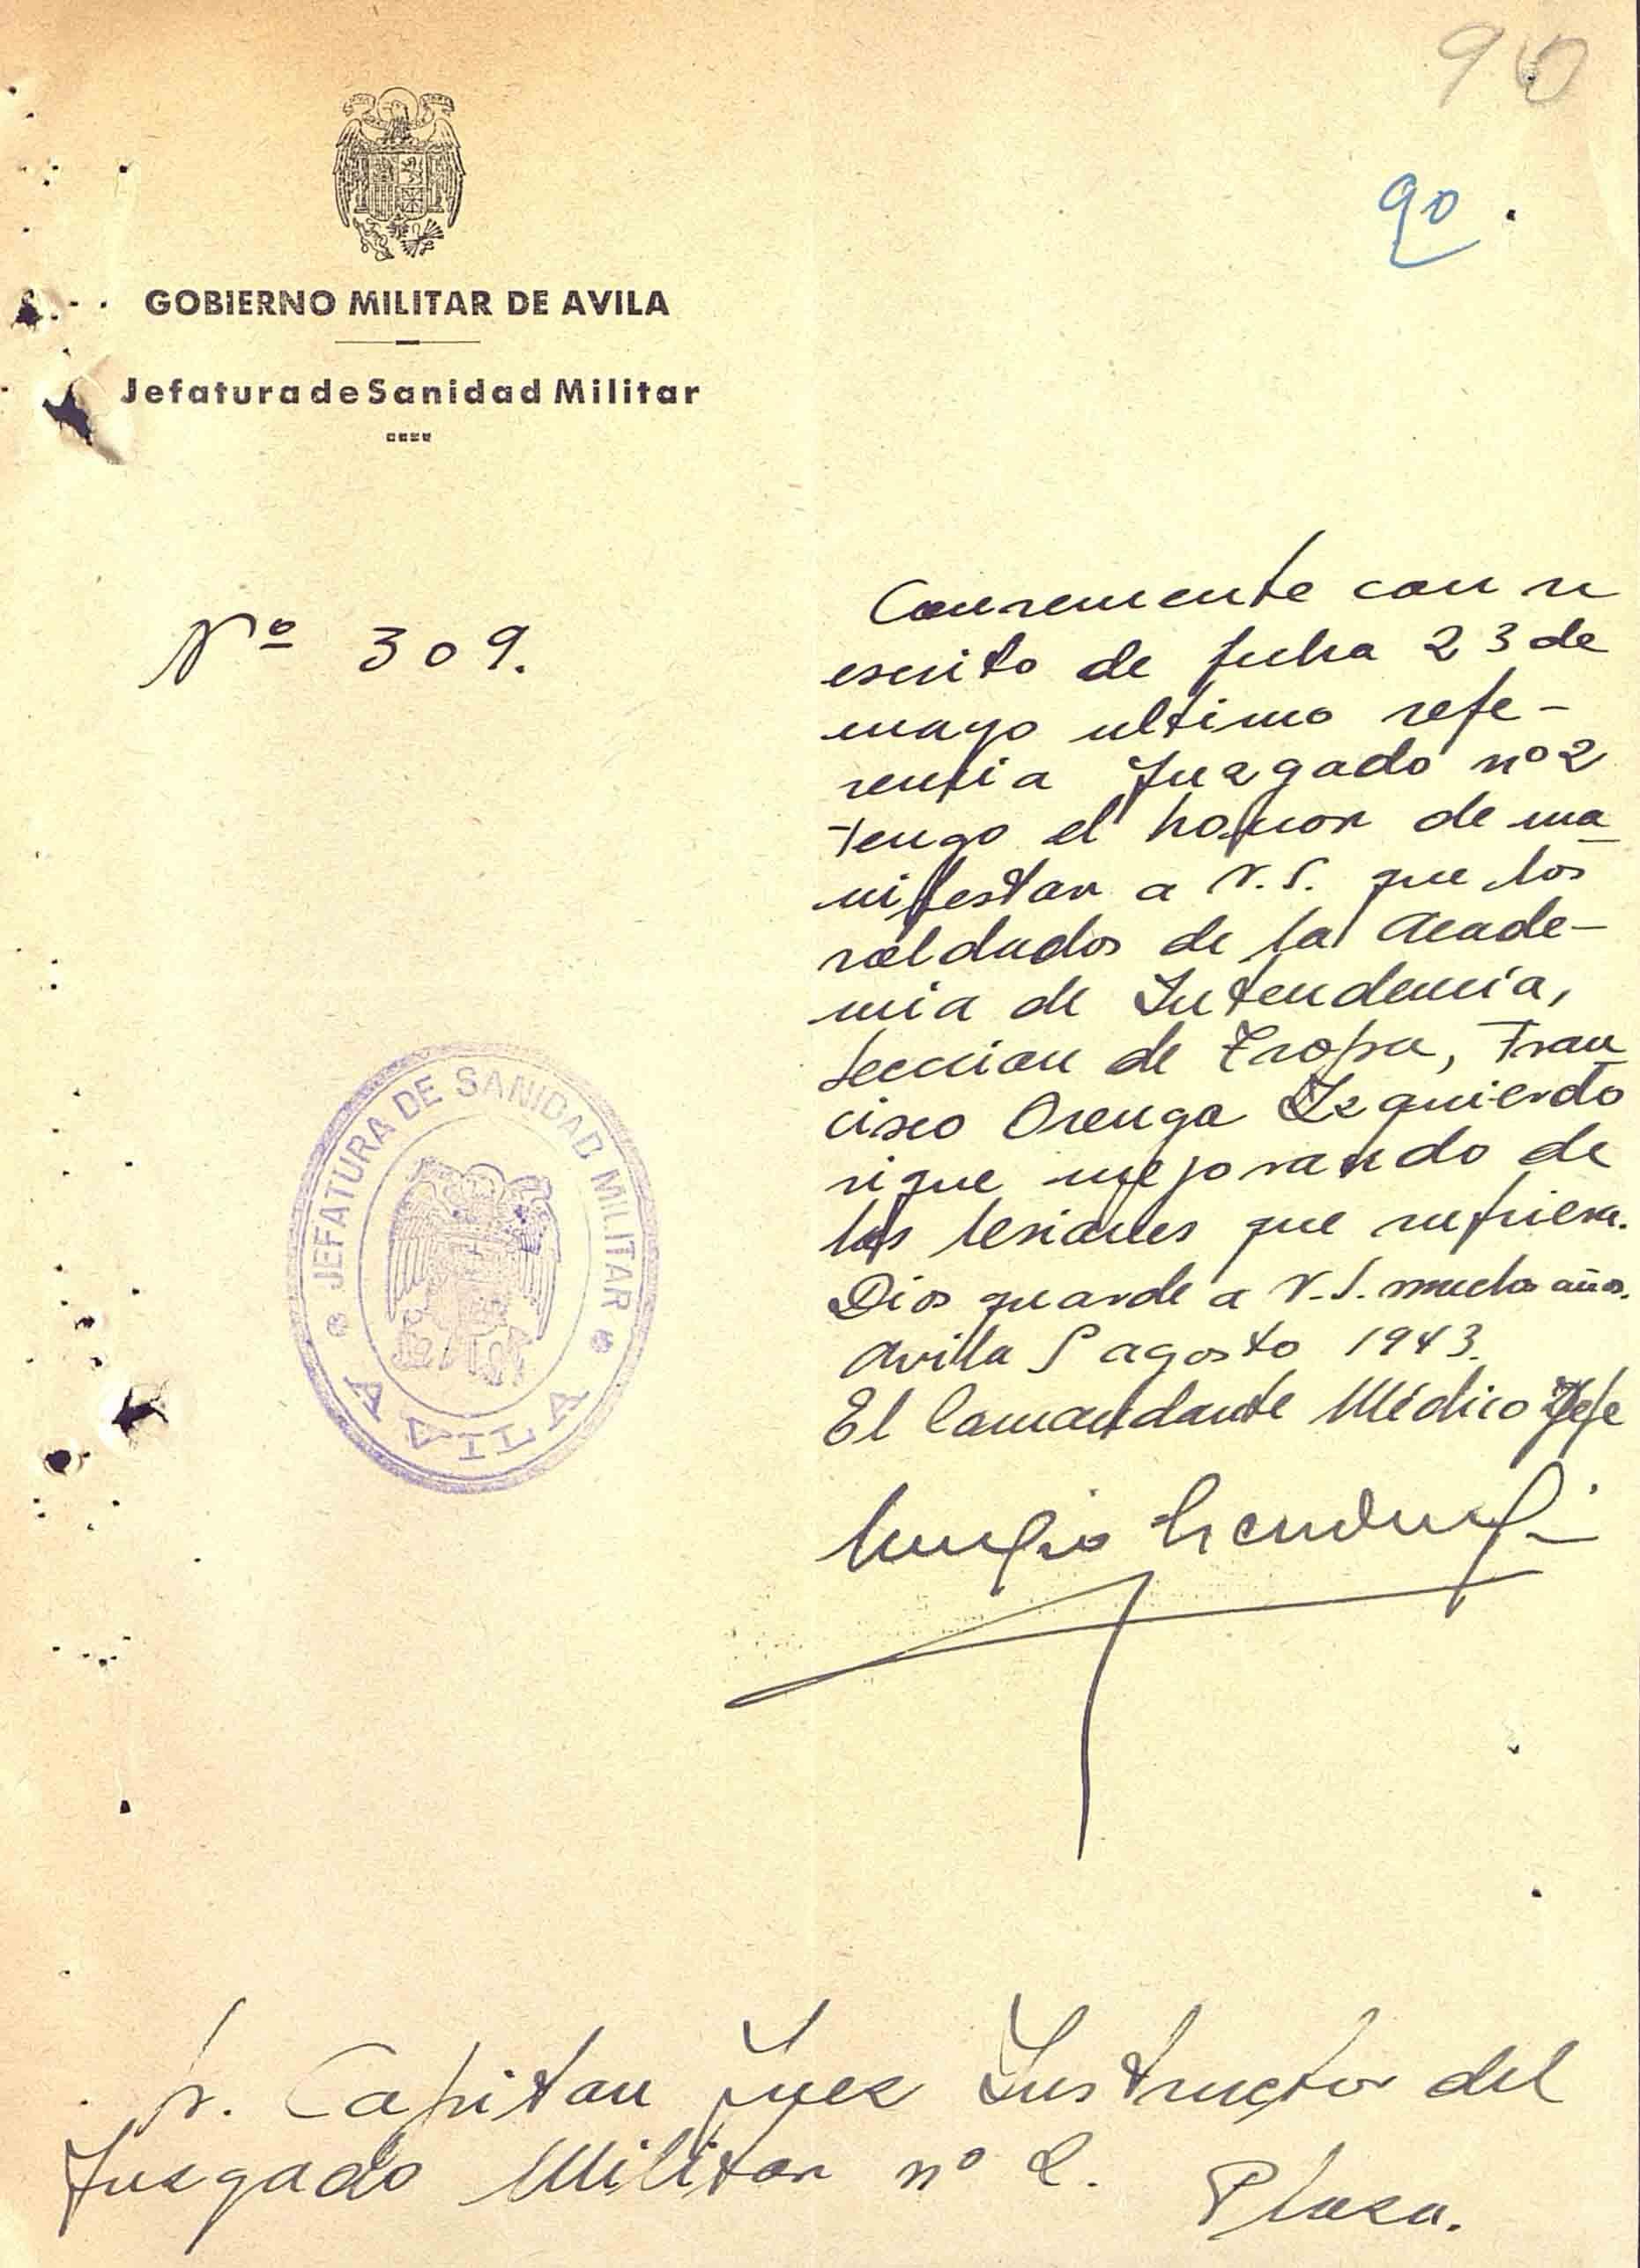 90
90.
GOBIERNO MILITAR DE AVILA
Jefatura de Sanidad Militar
Nº 309.
con su
escrito de fecha 23 de
mayo ultimo refe-
rencia Juzgado nº 2
tengo el honor de ma
nifestar a V.S. que los
soldados de la Acade-
mia de Intendencia,
Seccion de Tropa, Fran
cisco Orenga Izquierdo
sigue mejorando de
las lesiones que sufriera.
Dios guarde a V.S. muchos años.
Avila 5 agosto 1943.
El Comandante Médico Jefe
JEFATURA DE SANIDAD MILITAR
AVILA
S. Capitan Juez Instructor del
Juzgado Militar nº 2. Plaza.